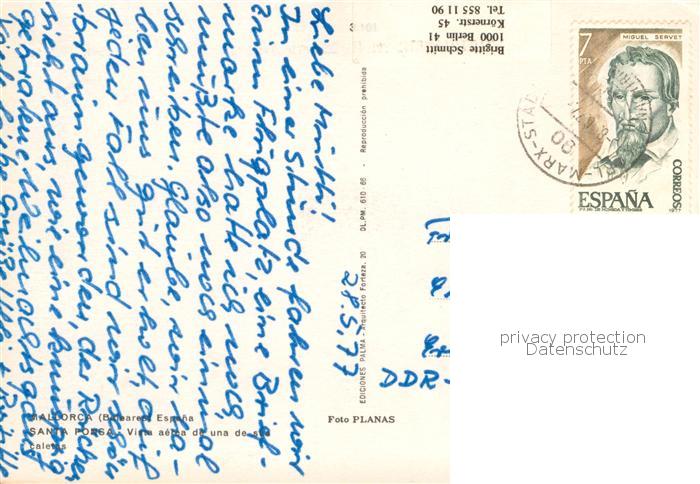 Liebe Mutti!
In einer Stunde fahren wir
zum Flugplatz, eine Brief-
marke hatte ich noch,
mußte also noch einmal
schreiben. Glaube, wir ha-
ben uns gut erholt, auf
jeden Fall sind wir schön
braun geworden, der
sieht aus, wie eine knusprig
gebratene Weihnachtsgans.
28.5.77
DDR-
Brigitte Schmitt
1000 Berlin 41
Körnerstr. 45
Tel. 855 11 90
MIGUEL SERVET
7
PTA
CORREOS
ESPAÑA
1977
MARX-STADT
EDICIONES PALMA - Arquitecto Forteza, 20 DL.PM. 610 - 66 - Reproducción prohibida
MALLORCA (Baleares) España
SANTA PONSA. Vista aérea de una de sus
caletas
Foto PLANAS
privacy protection
Datenschutz